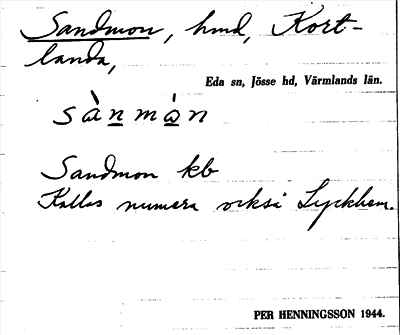 Sandmon, hmd, Kort-
landa,
Eda sn, Jösse hd, Värmlands län.
sànmàn
Sandmon kb
Kallas numera också Lyckhem.
PER HENNINGSSON 1944.